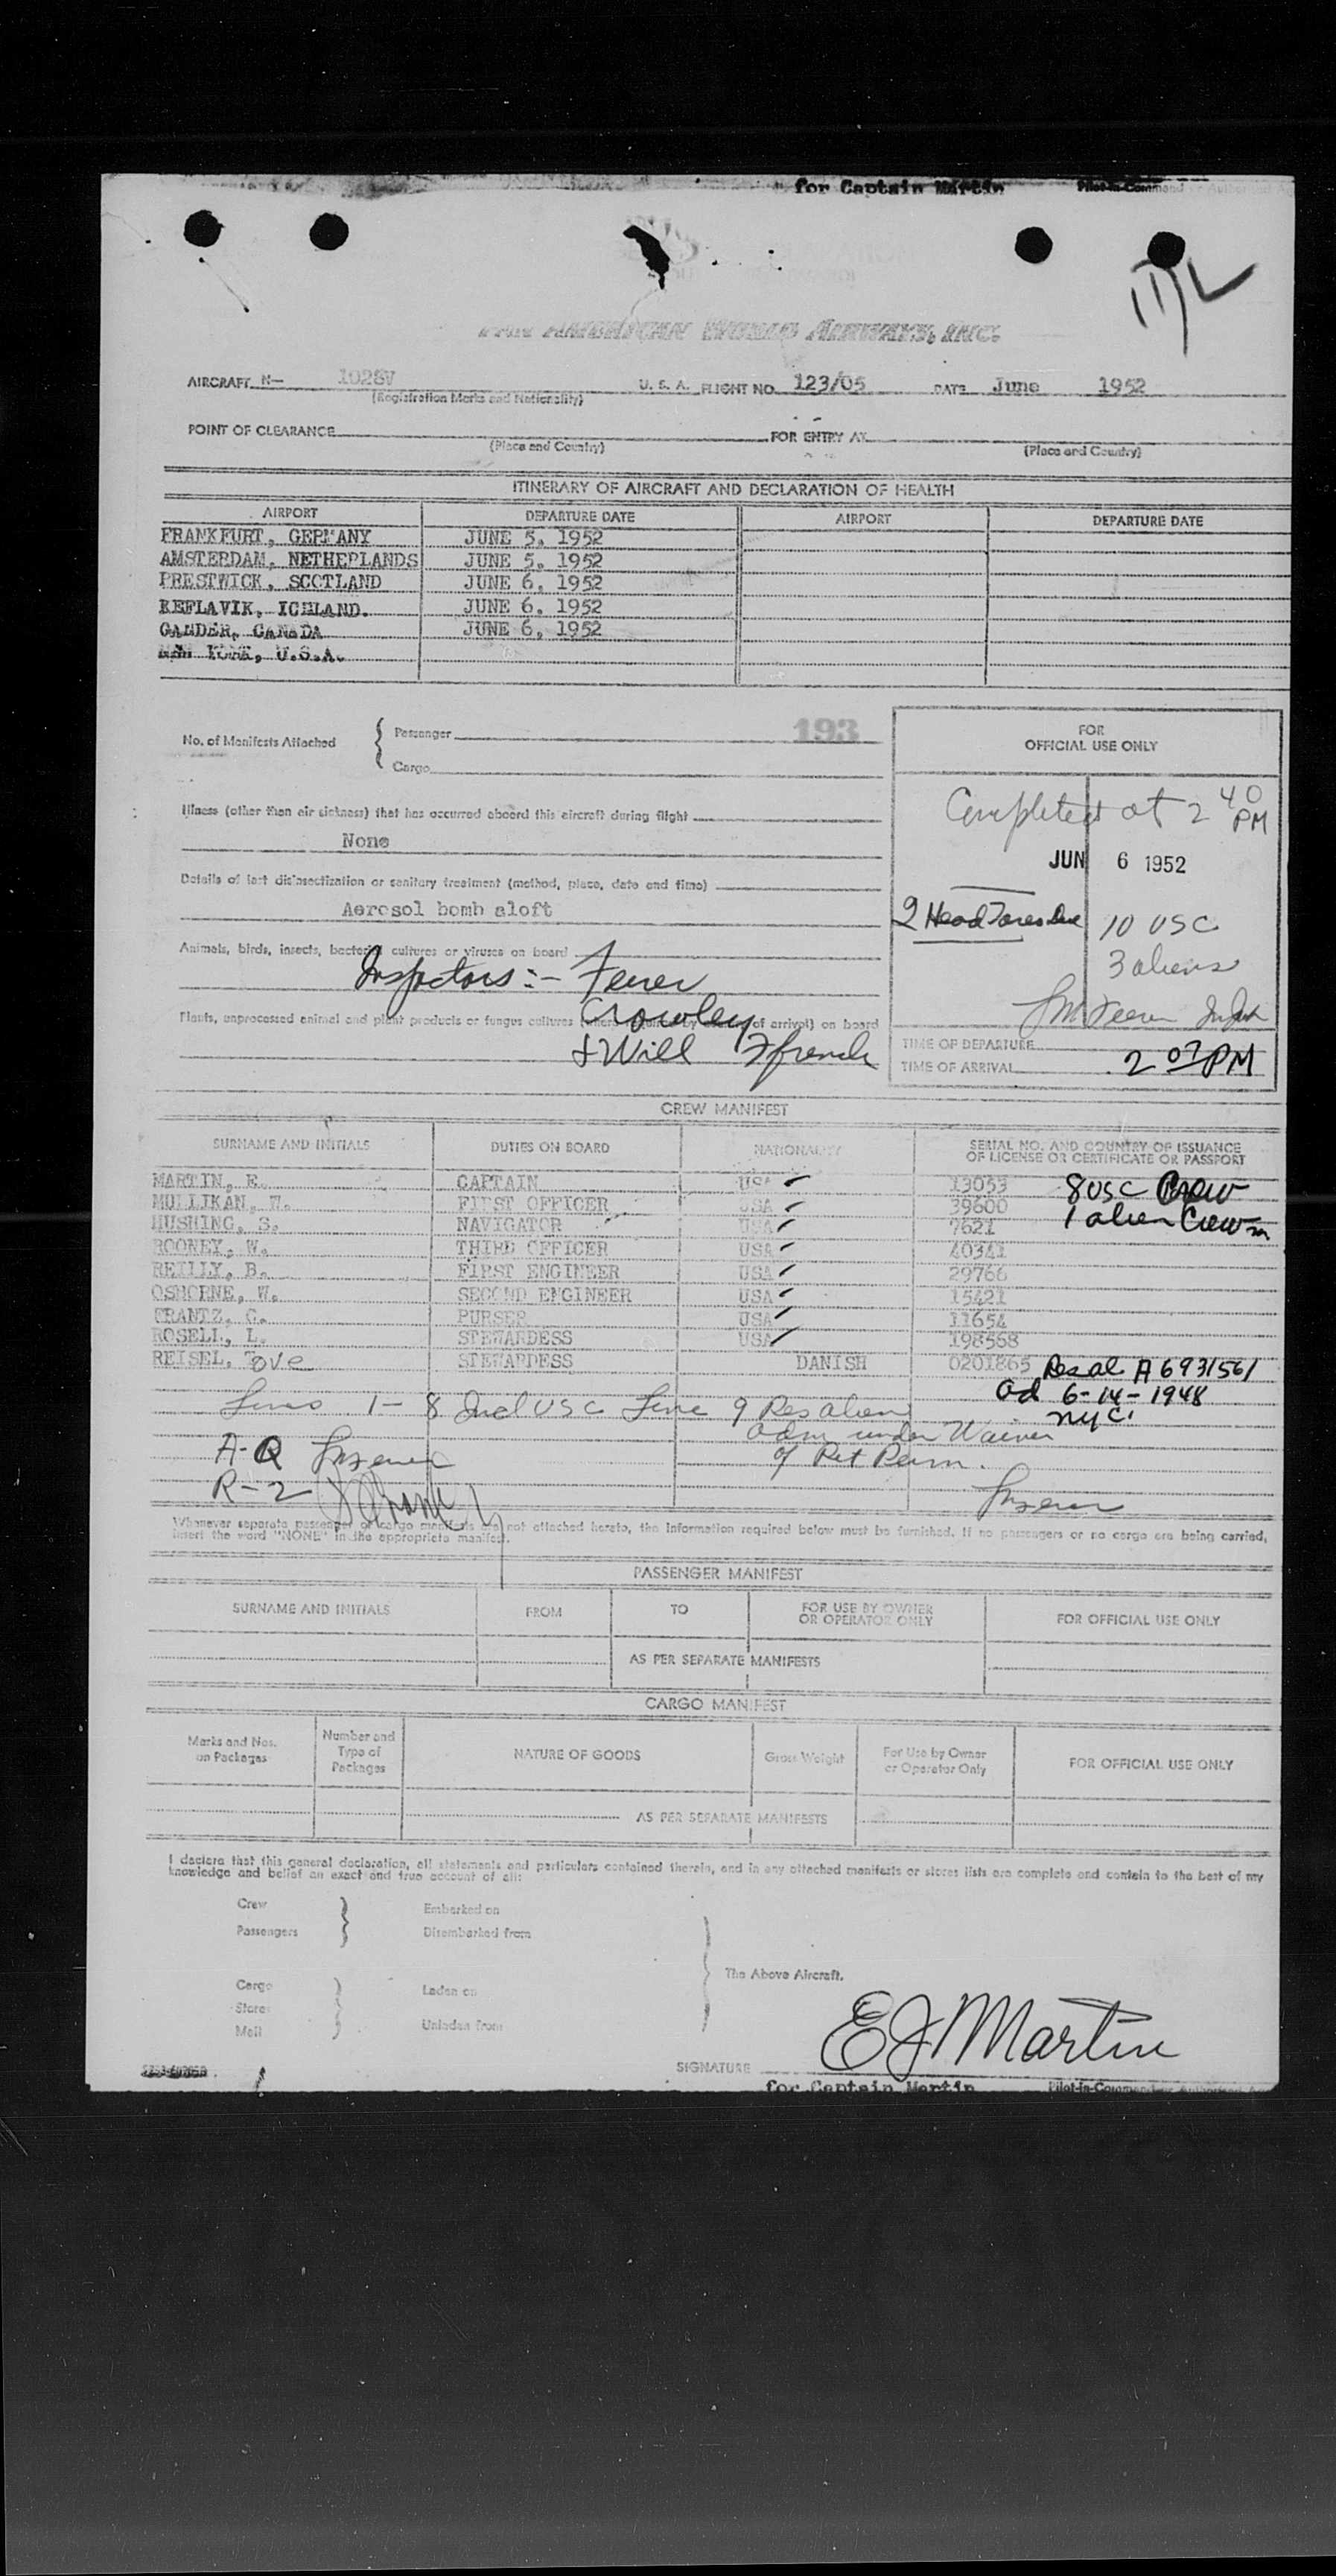 for Captain Martin Pilot-in-Command or Authorized
PAN AMERICAN WORLD AIRWAYS, INC.
AIRCRAFT N- 1028V U. S. A. FLIGHT NO. 123/05 DATE June 1952
(Registration Marks and Nationality)
POINT OF CLEARANCE FOR ENTRY AT
(Place and Country) (Place and Country)
ITINERARY OF AIRCRAFT AND DECLARATION OF HEALTH
AIRPORT DEPARTURE DATE AIRPORT DEPARTURE DATE
FRANKFURT, GERMANY JUNE 5, 1952
AMSTERDAM, NETHERLANDS JUNE 5, 1952
PRESTWICK, SCOTLAND JUNE 6, 1952
KEFLAVIK, ICELAND. JUNE 6, 1952
GANDER, CANADA JUNE 6, 1952
NEW YORK, U.S.A.
No. of Manifests Attached { Passenger 193
Cargo
FOR
OFFICIAL USE ONLY
Illness (other than air sickness) that has occurred aboard this aircraft during flight
None
Completed at 2 40 PM
JUN 6 1952
Details of last disinsectization or sanitary treatment (method, place, date and time)
Aerosol bomb aloft
2 Head Taxes Due 10 USC
3 aliens
Animals, birds, insects, bacterial cultures or viruses on board
Inspectors :- Fener
Crowley
Plants, unprocessed animal and plant products or fungus cultures of arrival) on board
& Will Ffrench
TIME OF DEPARTURE
TIME OF ARRIVAL 2 07 PM
CREW MANIFEST
SURNAME AND INITIALS DUTIES ON BOARD NATIONALITY SERIAL NO. AND COUNTRY OF ISSUANCE
OF LICENSE OR CERTIFICATE OR PASSPORT
MARTIN, E. CAPTAIN USA 13053 8 USC Crew
MULLIKAN, W. FIRST OFFICER USA 39600
HUSHING, S. NAVIGATOR USA 7621 1 alien Crewm
ROONEY, W. THIRD OFFICER USA 40341
REILLY, B. FIRST ENGINEER USA 29766
OSBORNE, W. SECOND ENGINEER USA 15421
FRANTZ, C. PURSER USA 11654
ROSELL, L. STEWARDESS USA 198568
REISEL, Tove STEWARDESS DANISH 0201865 Res al A6931561
ad 6-14-1948
NYC.
Lines 1-8 Incl USC Line 9 Res alien
adm under Waiver
of Ret Perm.
A-Q
R-2
Whenever separate passenger or cargo manifests are not attached hereto, the information required below must be furnished. If no passengers or no cargo are being carried,
insert the word "NONE" in the appropriate manifest.
PASSENGER MANIFEST
SURNAME AND INITIALS FROM TO FOR USE BY OWNER
OR OPERATOR ONLY FOR OFFICIAL USE ONLY
AS PER SEPARATE MANIFESTS
CARGO MANIFEST
Marks and Nos.
on Packages Number and
Type of
Packages NATURE OF GOODS Gross Weight For Use by Owner
or Operator Only FOR OFFICIAL USE ONLY
AS PER SEPARATE MANIFESTS
I declare that this general declaration, all statements and particulars contained therein, and in any attached manifests or stores lists are complete and contain to the best of my
knowledge and belief an exact and true account of all:
Crew Embarked on
Passengers Disembarked from
The Above Aircraft.
Cargo Laden on
Stores
Mail Unladen from
SIGNATURE EJ Martin
for Captain Martin Pilot-in-Command or Authorized